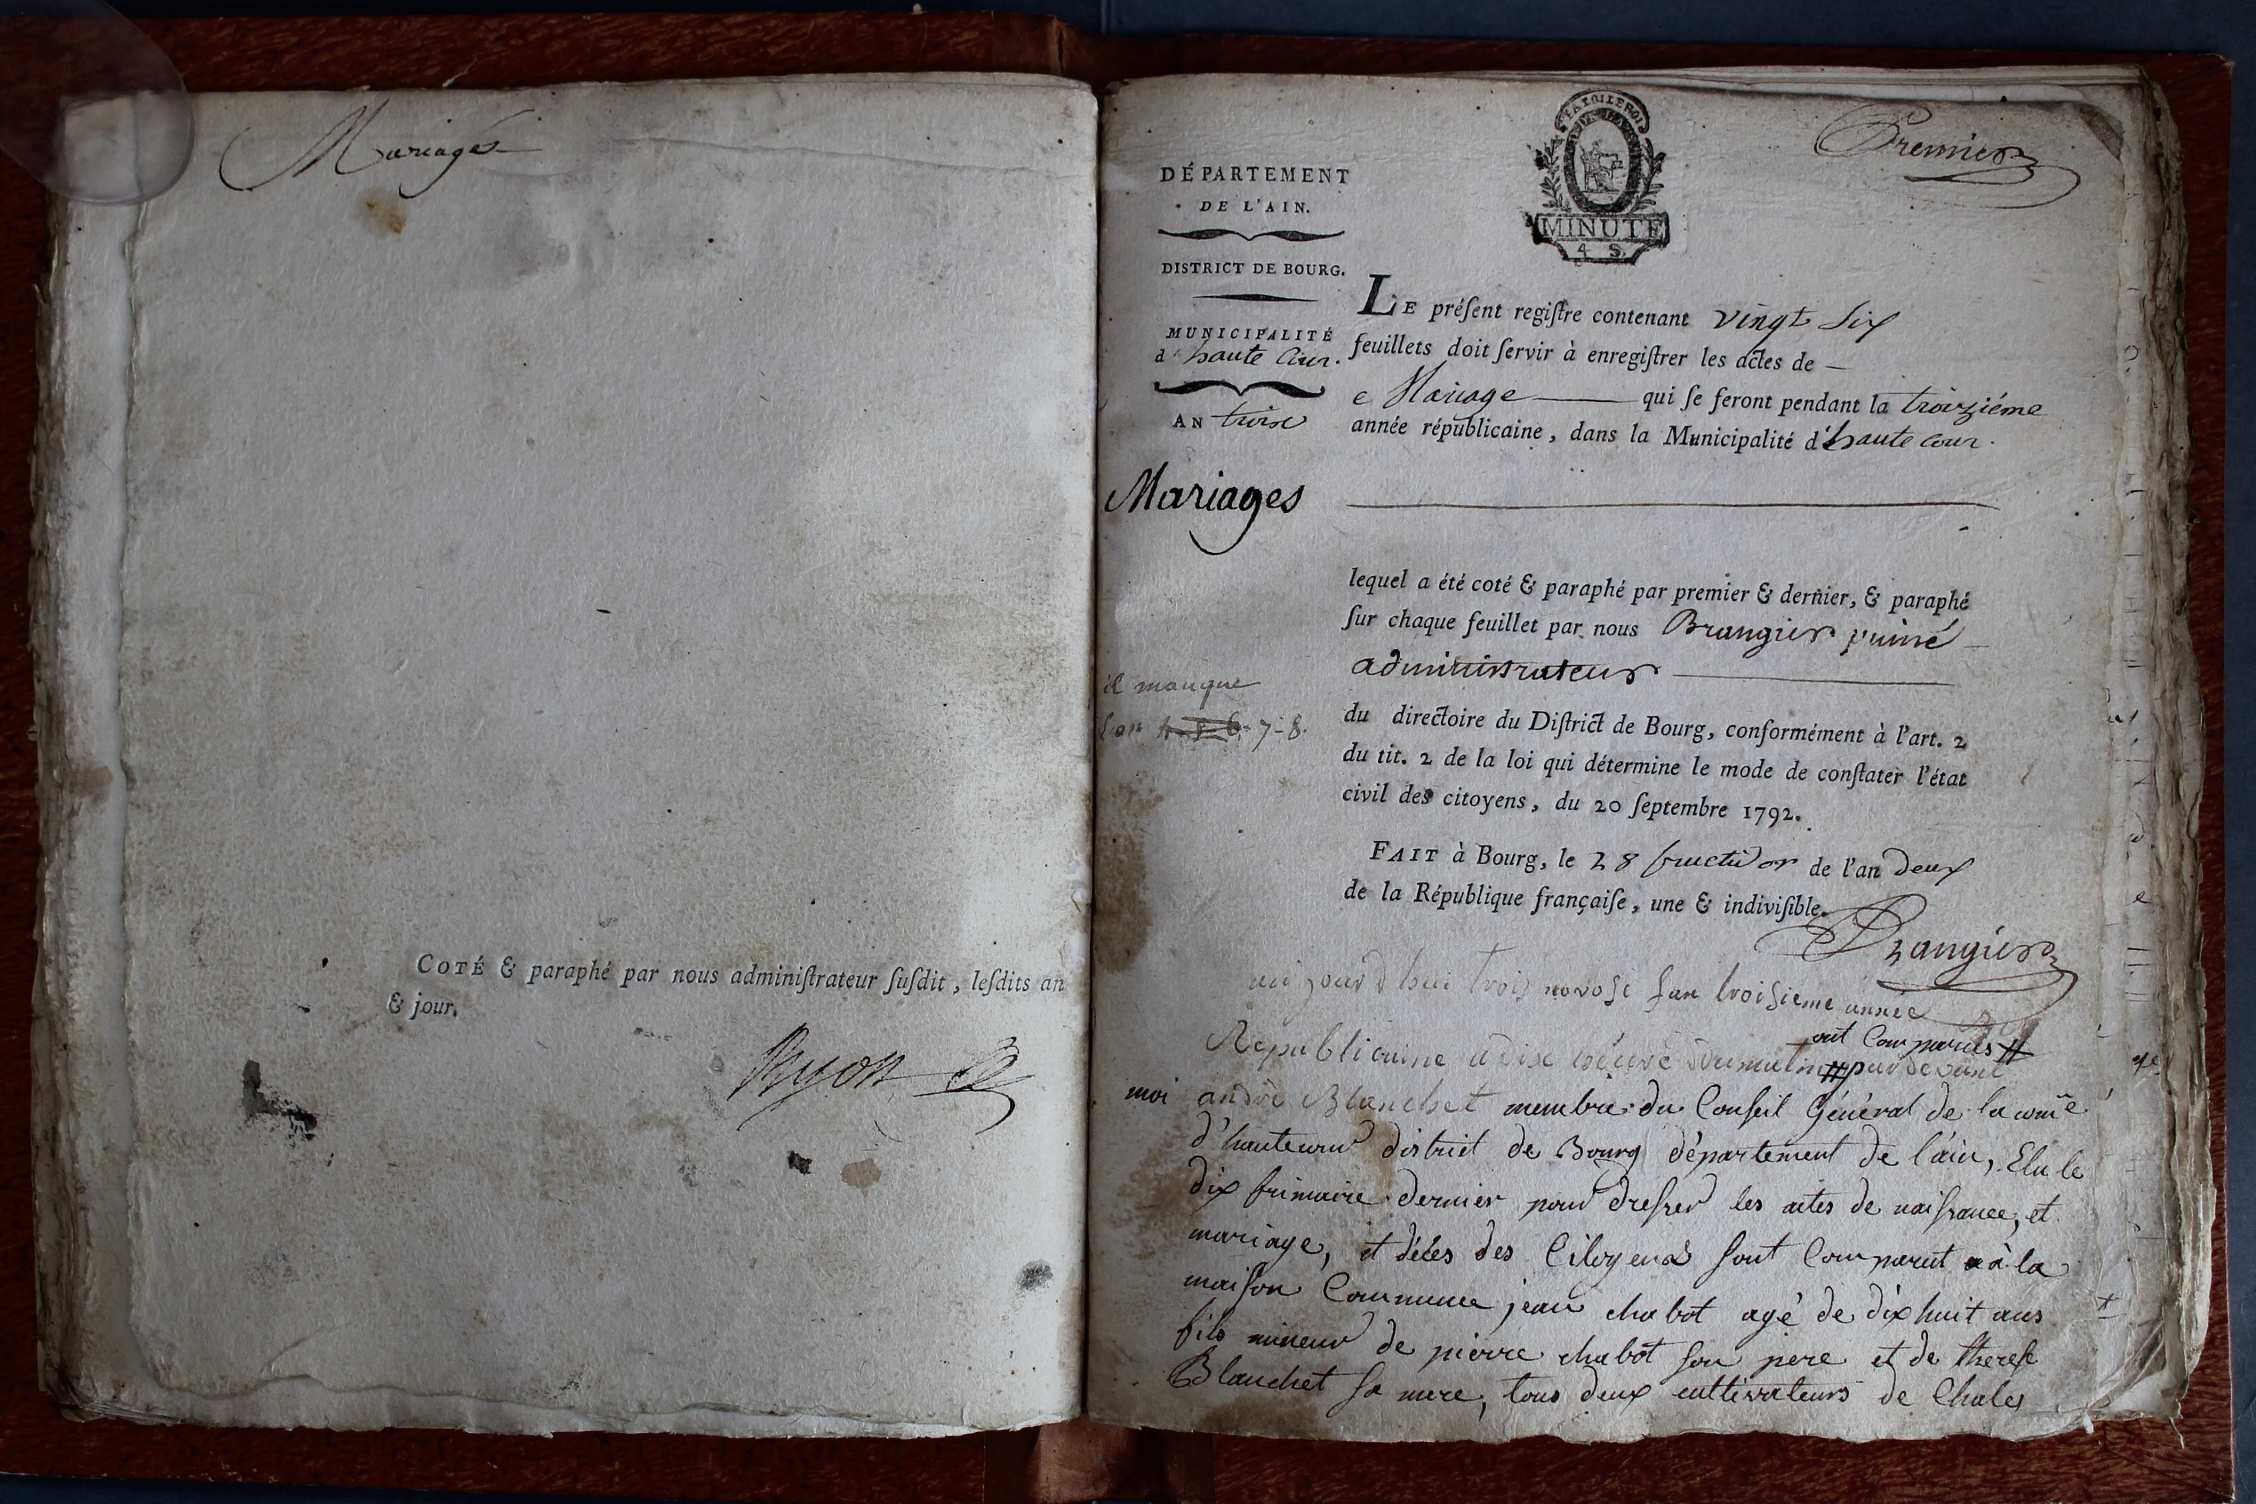 Mariages
COTÉ & paraphé par nous adminiſtrateur ſuſdit, leſdits an
& jour.
Premier
DÉPARTEMENT
DE L'AIN.
DISTRICT DE BOURG.
MUNICIPALITÉ
d'haute Cour.
AN troix
MINUTE
4 S.
LE préſent regiſtre contenant vingt Six
feuillets doit ſervir à enregiſtrer les actes de —
Mariage — qui ſe feront pendant la troizième
année républicaine, dans la Municipalité d'haute cour.
Mariages
lequel a été coté & paraphé par premier & dernier, & paraphé
ſur chaque feuillet par nous Brangier puiné
administrateur
il manque
l'an 7-8.
du directoire du Diſtrict de Bourg, conformément à l'art. 2
du tit. 2 de la loi qui détermine le mode de conſtater l'état
civil des citoyens, du 20 ſeptembre 1792.
FAIT à Bourg, le 28 fructidor de l'an deux
de la République françaiſe, une & indiviſible.
Brangier
aujourd'hui trois nivose l'an troisieme année
ont Comparus #
Republicaine a dix heure du matin # par devant
moi andré Blanchet membre du Conseil Général de la comẽ
d'hautecour district de Bourg département de l'ain, Elu le
dix frimaire dernier pour dresser les actes de naissance, et
mariage, et décès des Citoyens sont Comparut a à la
maison Commune jean chabot agé de dix huit ans
fils mineur de pierre chabot son pere et de therese
Blanchet sa mere, tous deux cultivateurs de Chales